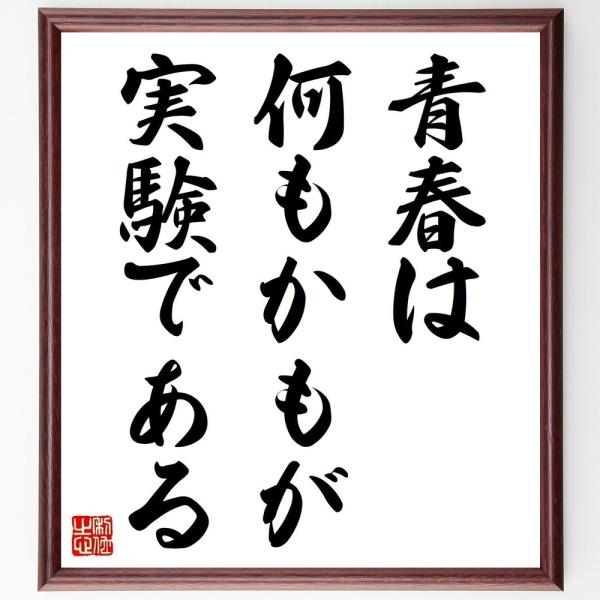 青春は
何もかもが
実験である